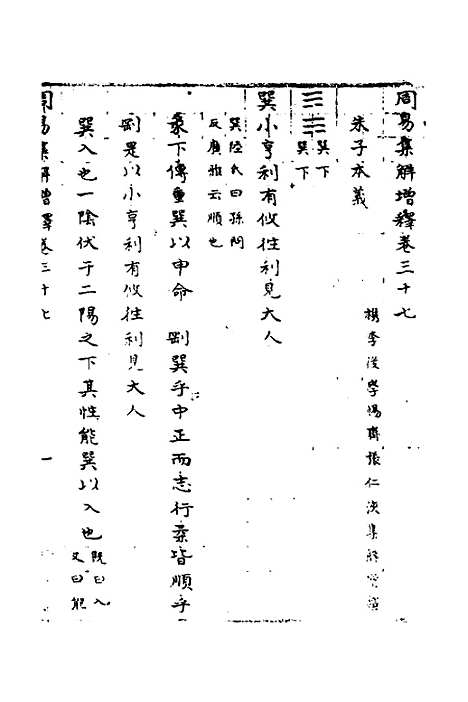 周易集解增釋卷三十七
檇李後學愓齋張仁浹集解增演
朱子本義
巽下
巽下
巽小亨利有攸往利見大人
巽陸氏曰孫問
反廣雅云順也
彖下傳重巽以申命 剛巽乎中正而志行柔皆順乎
剛是以小亨利有攸往利見大人
巽入也一陰伏于二陽之下其性能巽以入也既曰入
又曰能
周易集解增釋卷三十七
一